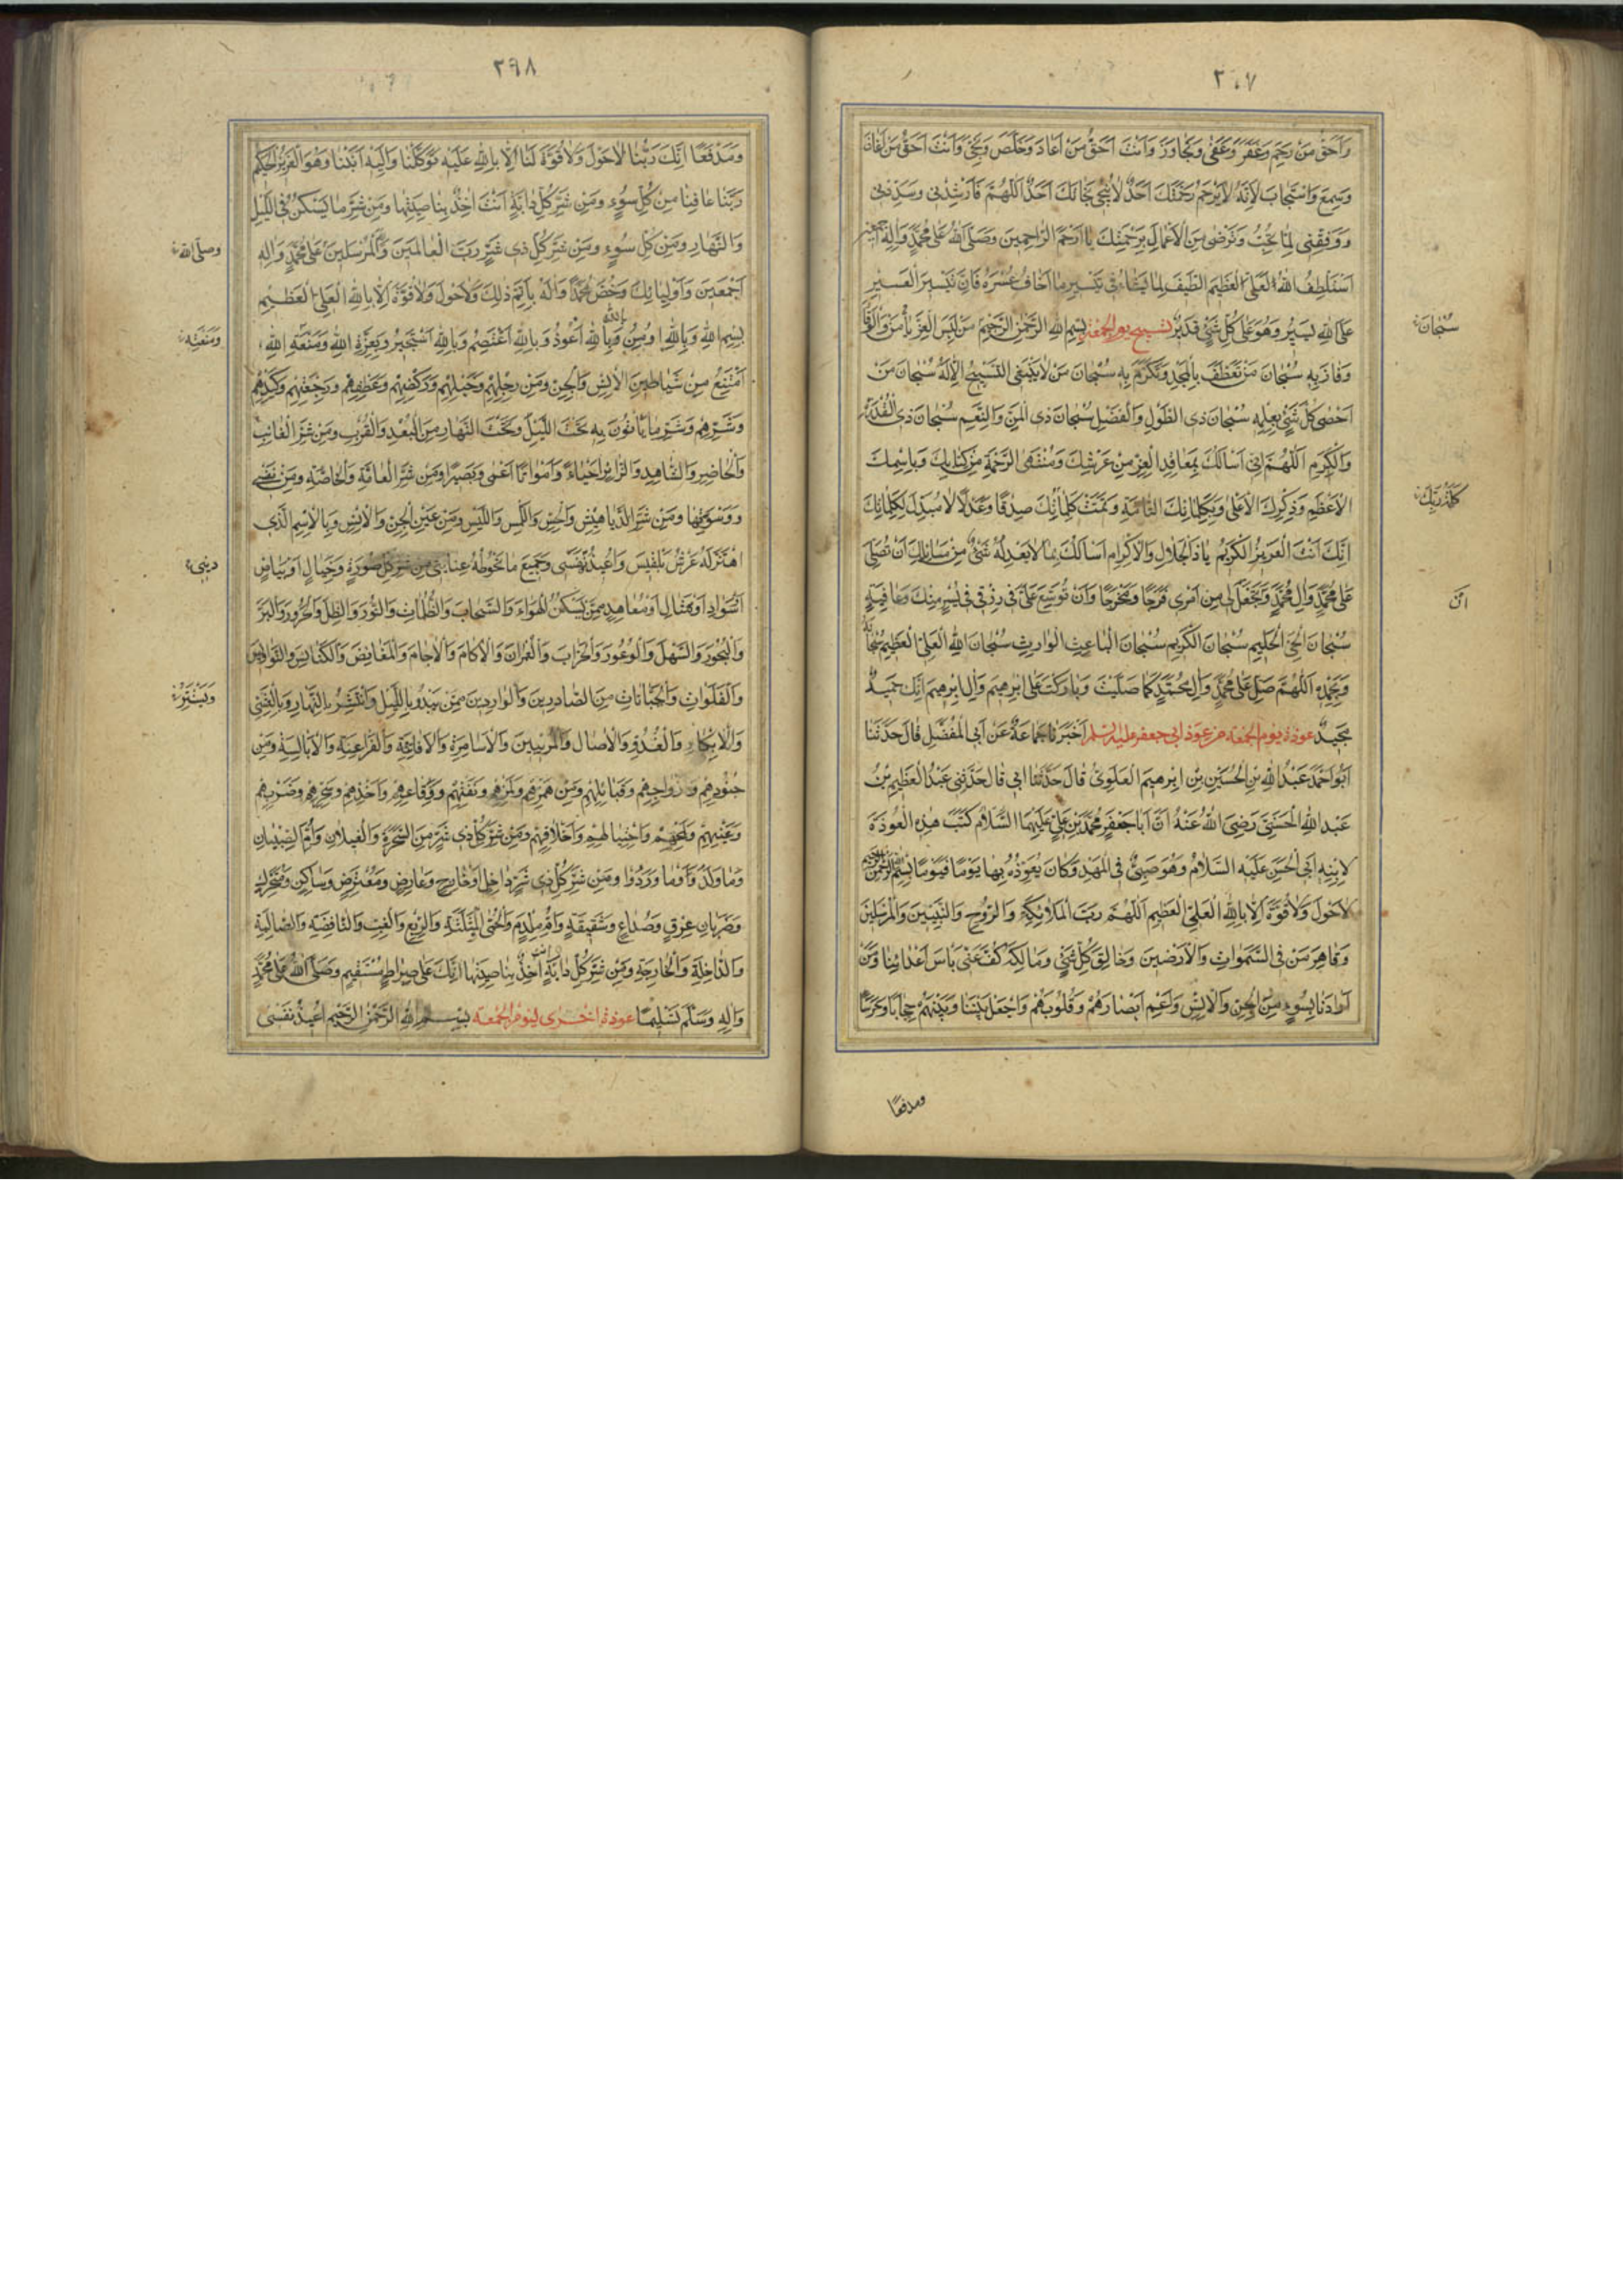 ٢٩٧
وَاَحَقُّ مَنْ رَحِمَ وَغَفَرَ وَعَفٰى وَتَجَاوَزَ وَاَنْتَ اَحَقُّ مَنْ
وَسَمِعَ وَاسْتَجَابَ لِاَنَّهُ لَا يَرْحَمُ رَحْمَتَكَ اَحَدٌ وَلَا يُنْجِي نَجَاتَكَ اَحَدٌ اَللّٰهُمَّ فَاَرْشِدْنِي وَسَدِّدْنِي
وَوَفِّقْنِي لِمَا تُحِبُّ وَتَرْضٰى مِنَ الْاَعْمَالِ بِرَحْمَتِكَ يَا اَرْحَمَ الرَّاحِمِينَ وَصَلَّى اللّٰهُ عَلٰى مُحَمَّدٍ وَاٰلِهِ اجمعين
اَسْتَلْطِفُ اللّٰهَ الْعَلِيَّ الْعَظِيمَ اللَّطِيفَ لِمَا يَشَاءُ فِي تَيْسِيرِ مَا اَخَافُ عُسْرَهُ فَاِنَّ تَيْسِيرَ الْعَسِيرِ
عَلَى اللّٰهِ يَسِيرٌ وَهُوَ عَلٰى كُلِّ شَيْءٍ قَدِيرٌ تسبيح يوم الجمعة بِسْمِ اللّٰهِ الرَّحْمٰنِ الرَّحِيمِ مَنْ لَبِسَ الْعِزَّ
وَفَازَ بِهِ سُبْحَانَ مَنْ تَعَطَّفَ بِالْمَجْدِ وَتَكَرَّمَ بِهِ سُبْحَانَ مَنْ لَا يَنْبَغِي التَّسْبِيحُ اِلَّا لَهُ سُبْحَانَ مَنْ
اَحْصٰى كُلَّ شَيْءٍ بِعِلْمِهِ سُبْحَانَ ذِي الطَّوْلِ وَالْفَضْلِ سُبْحَانَ ذِي الْمَنِّ وَالنِّعَمِ سُبْحَانَ ذِي الْقُدْرَةِ
وَالْكَرَمِ اَللّٰهُمَّ اِنِّي اَسْاَلُكَ بِمَعَاقِدِ الْعِزِّ مِنْ عَرْشِكَ وَمُنْتَهَى الرَّحْمَةِ مِنْ كِتَابِكَ وَبِاسْمِكَ
الْاَعْظَمِ وَذِكْرِكَ الْاَعْلٰى وَبِكَلِمَاتِكَ التَّامَّةِ وَتَمَّتْ كَلِمَاتُكَ صِدْقًا وَعَدْلًا لَا مُبَدِّلَ لِكَلِمَاتِكَ
اِنَّكَ اَنْتَ الْعَزِيزُ الْكَرِيمُ يَا ذَا الْجَلَالِ وَالْاِكْرَامِ اَسْاَلُكَ بِمَا لَا يَعْدِلُهُ شَيْءٌ مِنْ مَسَائِلِكَ اَنْ تُصَلِّيَ
عَلٰى مُحَمَّدٍ وَاٰلِ مُحَمَّدٍ وَتَجْعَلَ لِي مِنْ اَمْرِي فَرَجًا وَمَخْرَجًا وَاَنْ تُوَسِّعَ عَلَيَّ فِي رِزْقِي فِي يُسْرٍ مِنْكَ وَعَافِيَةٍ
سُبْحَانَ الْحَيِّ الْحَلِيمِ سُبْحَانَ الْكَرِيمِ سُبْحَانَ الْبَاعِثِ الْوَارِثِ سُبْحَانَ اللّٰهِ الْعَلِيِّ الْعَظِيمِ سُبْحَانَهُ
وَبِحَمْدِهِ اَللّٰهُمَّ صَلِّ عَلٰى مُحَمَّدٍ وَاٰلِ مُحَمَّدٍ كَمَا صَلَّيْتَ وَبَارَكْتَ عَلٰى اِبْرٰهِيمَ وَاٰلِ اِبْرٰهِيمَ اِنَّكَ حَمِيدٌ
مَجِيدٌ عوذة يوم الجمعة من عوذ ابى جعفر عليه السلم اَخْبَرَنَا جَمَاعَةٌ عَنْ اَبِي الْمُفَضَّلِ قَالَ حَدَّثَنَا
اَبُو اَحْمَدَ عَبْدُ اللّٰهِ بْنُ الْحُسَيْنِ بْنِ اِبْرٰهِيمَ الْعَلَوِيُّ قَالَ حَدَّثَنَا اَبِي قَالَ حَدَّثَنِي عَبْدُ الْعَظِيمِ بْنُ
عَبْدِ اللّٰهِ الْحَسَنِيُّ رَضِيَ اللّٰهُ عَنْهُ اَنَّ اَبَا جَعْفَرٍ مُحَمَّدَ بْنَ عَلِيٍّ عَلَيْهِمَا السَّلَامُ كَتَبَ هٰذِهِ الْعُوذَةَ
لِابْنِهِ اَبِي الْحَسَنِ عَلَيْهِ السَّلَامُ وَهُوَ صَبِيٌّ فِي الْمَهْدِ وَكَانَ يُعَوِّذُهُ بِهَا يَوْمًا فَيَوْمًا بِسْمِ اللّٰهِ الرَّحْمٰنِ الرَّحِيمِ
لَا حَوْلَ وَلَا قُوَّةَ اِلَّا بِاللّٰهِ الْعَلِيِّ الْعَظِيمِ اَللّٰهُمَّ رَبَّ الْمَلَائِكَةِ وَالرُّوحِ وَالنَّبِيِّينَ وَالْمُرْسَلِينَ
وَقَاهِرَ مَنْ فِي السَّمٰوَاتِ وَالْاَرَضِينَ وَخَالِقَ كُلِّ شَيْءٍ وَمَالِكَهُ كُفَّ عَنِّي بَاْسَ اَعْدَائِنَا وَمَنْ
اَرَادَنَا بِسُوءٍ مِنَ الْجِنِّ وَالْاِنْسِ وَاَعْمِ اَبْصَارَهُمْ وَقُلُوبَهُمْ وَاجْعَلْ بَيْنَنَا وَبَيْنَهُمْ حِجَابًا وَحَرَسًا
ومدفعًا
سُبْحَانَ
كَلِمَةُ رَبِّكَ
٢٩٨
وَمَدْفَعًا اِنَّكَ رَبُّنَا لَا حَوْلَ وَلَا قُوَّةَ لَنَا اِلَّا بِاللّٰهِ عَلَيْهِ تَوَكَّلْنَا وَاِلَيْهِ اَنَبْنَا وَهُوَ الْعَزِيزُ الْحَكِيمُ
رَبَّنَا عَافِنَا مِنْ كُلِّ سُوءٍ وَمِنْ شَرِّ كُلِّ دَابَّةٍ اَنْتَ اٰخِذٌ بِنَاصِيَتِهَا وَمِنْ شَرِّ مَا يَسْكُنُ فِي اللَّيْلِ
وَالنَّهَارِ وَمِنْ كُلِّ سُوءٍ وَمِنْ شَرِّ كُلِّ ذِي شَرٍّ رَبَّ الْعَالَمِينَ وَاِلٰهَ الْمُرْسَلِينَ عَلٰى مُحَمَّدٍ وَاٰلِهِ
اَجْمَعِينَ وَاَوْلِيَائِكَ وَخُصَّ مُحَمَّدًا وَاٰلَهُ بِاَتَمِّ ذٰلِكَ وَلَا حَوْلَ وَلَا قُوَّةَ اِلَّا بِاللّٰهِ الْعَلِيِّ الْعَظِيمِ
بِسْمِ اللّٰهِ وَبِاللّٰهِ اُومِنُ وَبِاللّٰهِ اَعُوذُ وَبِاللّٰهِ اَعْتَصِمُ وَبِاللّٰهِ اَسْتَجِيرُ وَبِعِزَّةِ اللّٰهِ وَمَنْعَةِ اللّٰهِ
اَمْتَنِعُ مِنْ شَيَاطِينِ الْاِنْسِ وَالْجِنِّ وَمِنْ رَجِلِهِمْ وَخَيْلِهِمْ وَرَكْضِهِمْ وَعَطْفِهِمْ وَرَجْعَتِهِمْ وَكَيْدِهِمْ
وَشَرِّهِمْ وَشَرِّ مَا يَاْتُونَ بِهِ تَحْتَ اللَّيْلِ وَتَحْتَ النَّهَارِ مِنَ الْبُعْدِ وَالْقُرْبِ وَمِنْ شَرِّ الْغَائِبِ
وَالْحَاضِرِ وَالشَّاهِدِ وَالزَّائِرِ اَحْيَاءً وَاَمْوَاتًا اَعْمٰى وَبَصِيرًا وَمِنْ شَرِّ الْعَامَّةِ وَالْخَاصَّةِ وَمِنْ نَفْسِي
وَوَسْوَسَتِهَا وَمِنْ شَرِّ الدَّيَاهِشِ وَالْحِسِّ وَاللَّمْسِ وَاللَّبْسِ وَمِنْ عَيْنِ الْجِنِّ وَالْاِنْسِ وَبِالْاِسْمِ الَّذِي
اهْتَزَّ لَهُ عَرْشُ بَلْقِيسَ وَاُعِيذُ نَفْسِي وَجَمِيعَ مَا تَحُوطُهُ عِنَايَتِي مِنْ شَرِّ كُلِّ صُورَةٍ وَخَيَالٍ اَوْ بَيَاضٍ
اَوْ سَوَادٍ اَوْ تِمْثَالٍ اَوْ مُعَاهِدٍ مِمَّنْ يَسْكُنُ الْهَوَاءَ وَالسَّحَابَ وَالظُّلُمَاتِ وَالنُّورَ وَالظِّلَّ وَالْحَرُورَ وَالْبَرَّ
وَالْبُحُورَ وَالسَّهْلَ وَالْوُعُورَ وَالْخَرَابَ وَالْعُمْرَانَ وَالْاٰكَامَ وَالْاٰجَامَ وَالْمَغَائِضَ وَالْكَنَائِسَ وَالنَّوَاوِيسَ
وَالْفَلَوَاتِ وَالْجَبَّانَاتِ مِنَ الصَّادِرِينَ وَالْوَارِدِينَ مِمَّنْ يَبْدُو بِاللَّيْلِ وَيَنْتَشِرُ بِالنَّهَارِ وَبِالْعَشِيِّ
وَالْاِبْكَارِ وَالْغُدُوِّ وَالْاٰصَالِ وَالْمُرِيبِينَ وَالْاَسَامِرَةِ وَالْاَفَاتِرَةِ وَالْفَرَاعِنَةِ وَالْاَبَالِسَةِ وَمِنْ
جُنُودِهِمْ وَاَزْوَاجِهِمْ وَقَبَائِلِهِمْ وَمِنْ هَمْزِهِمْ وَلَمْزِهِمْ وَنَفْثِهِمْ وَوِقَاعِهِمْ وَاَخْذِهِمْ وَسِحْرِهِمْ وَضَرْبِهِمْ
وَعَيْنِهِمْ وَلَمْحِهِمْ وَاحْتِيَالِهِمْ وَاَخْلَاقِهِمْ وَمِنْ شَرِّ كُلِّ ذِي شَرٍّ مِنَ السَّحَرَةِ وَالْغِيلَانِ وَاُمِّ الصِّبْيَانِ
وَمَا وَلَدُوا وَمَا وَرَدُوا وَمِنْ شَرِّ كُلِّ ذِي شَرٍّ دَاخِلٍ اَوْ خَارِجٍ وَعَارِضٍ وَمُعْتَرِضٍ وَسَاكِنٍ وَمُتَحَرِّكٍ
وَضَرَبَانِ عِرْقٍ وَصُدَاعٍ وَشَقِيقَةٍ وَاُمِّ مِلْدَمٍ وَالْحُمَّى الْمُثَلَّثَةِ وَالرِّبْعِ وَالْغِبِّ وَالنَّافِضَةِ وَالصَّالِبَةِ
وَالدَّاخِلَةِ وَالْخَارِجَةِ وَمِنْ شَرِّ كُلِّ دَابَّةٍ اَنْتَ اٰخِذٌ بِنَاصِيَتِهَا اِنَّكَ عَلٰى صِرَاطٍ مُسْتَقِيمٍ وَصَلَّى اللّٰهُ عَلٰى مُحَمَّدٍ
وَاٰلِهِ وَسَلَّمَ تَسْلِيمًا عوذة اخرى ليوم الجمعة بِسْمِ اللّٰهِ الرَّحْمٰنِ الرَّحِيمِ اُعِيذُ نَفْسِي
وصلّى الله
دينى
وَيَسْتَتِرُ